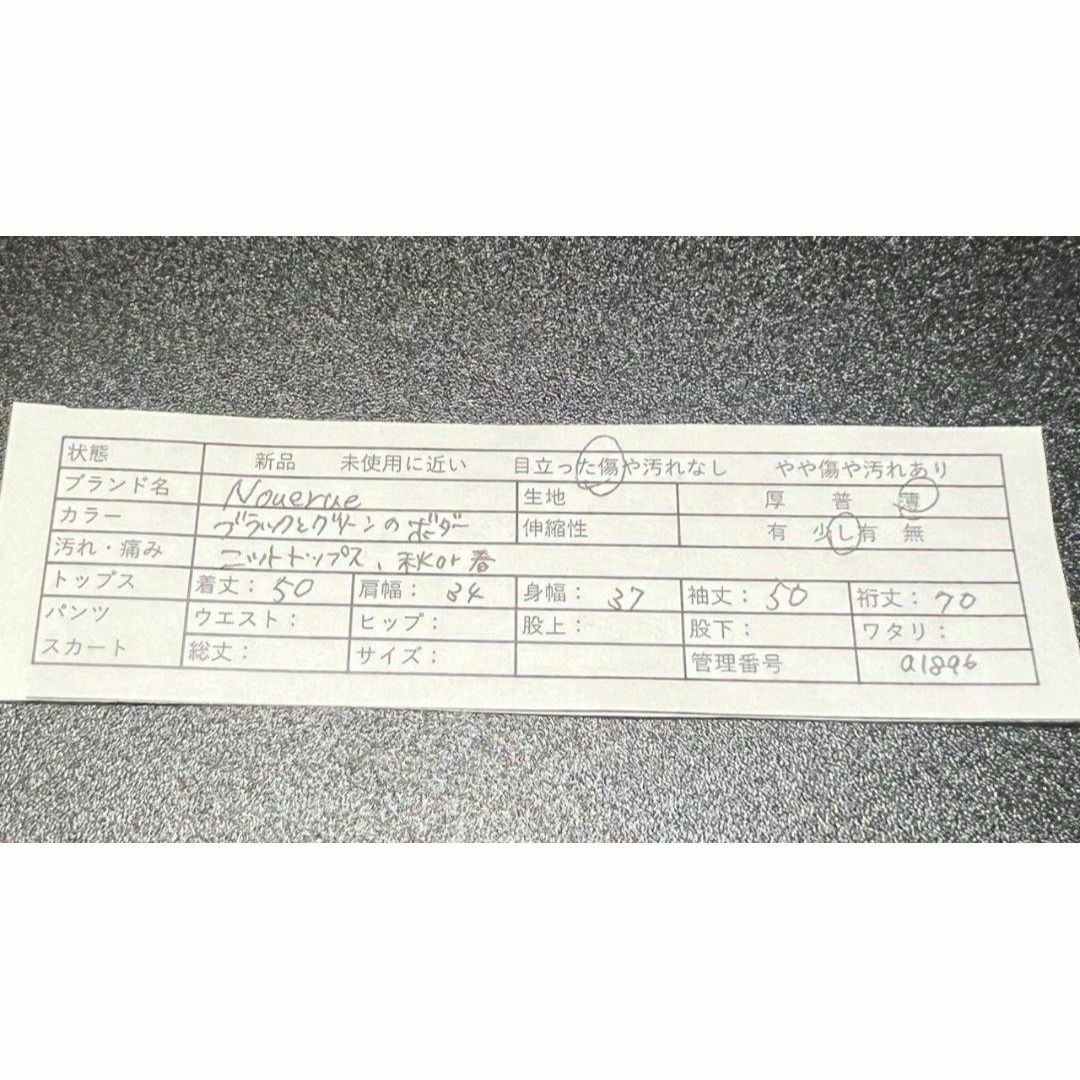 状態 新品 未使用に近い 目立った傷や汚れなし やや傷や汚れあり
ブランド名 Nouerue 生地 厚 普 薄
カラー ブラックとグリーンのボーダー 伸縮性 有 少し有 無
汚れ・痛み ニットトップス、秋or春
トップス 着丈: 50 肩幅: 34 身幅: 37 袖丈: 50 裄丈: 70
パンツ ウエスト: ヒップ: 股上: 股下: ワタリ:
スカート 総丈: サイズ: 管理番号 a1896